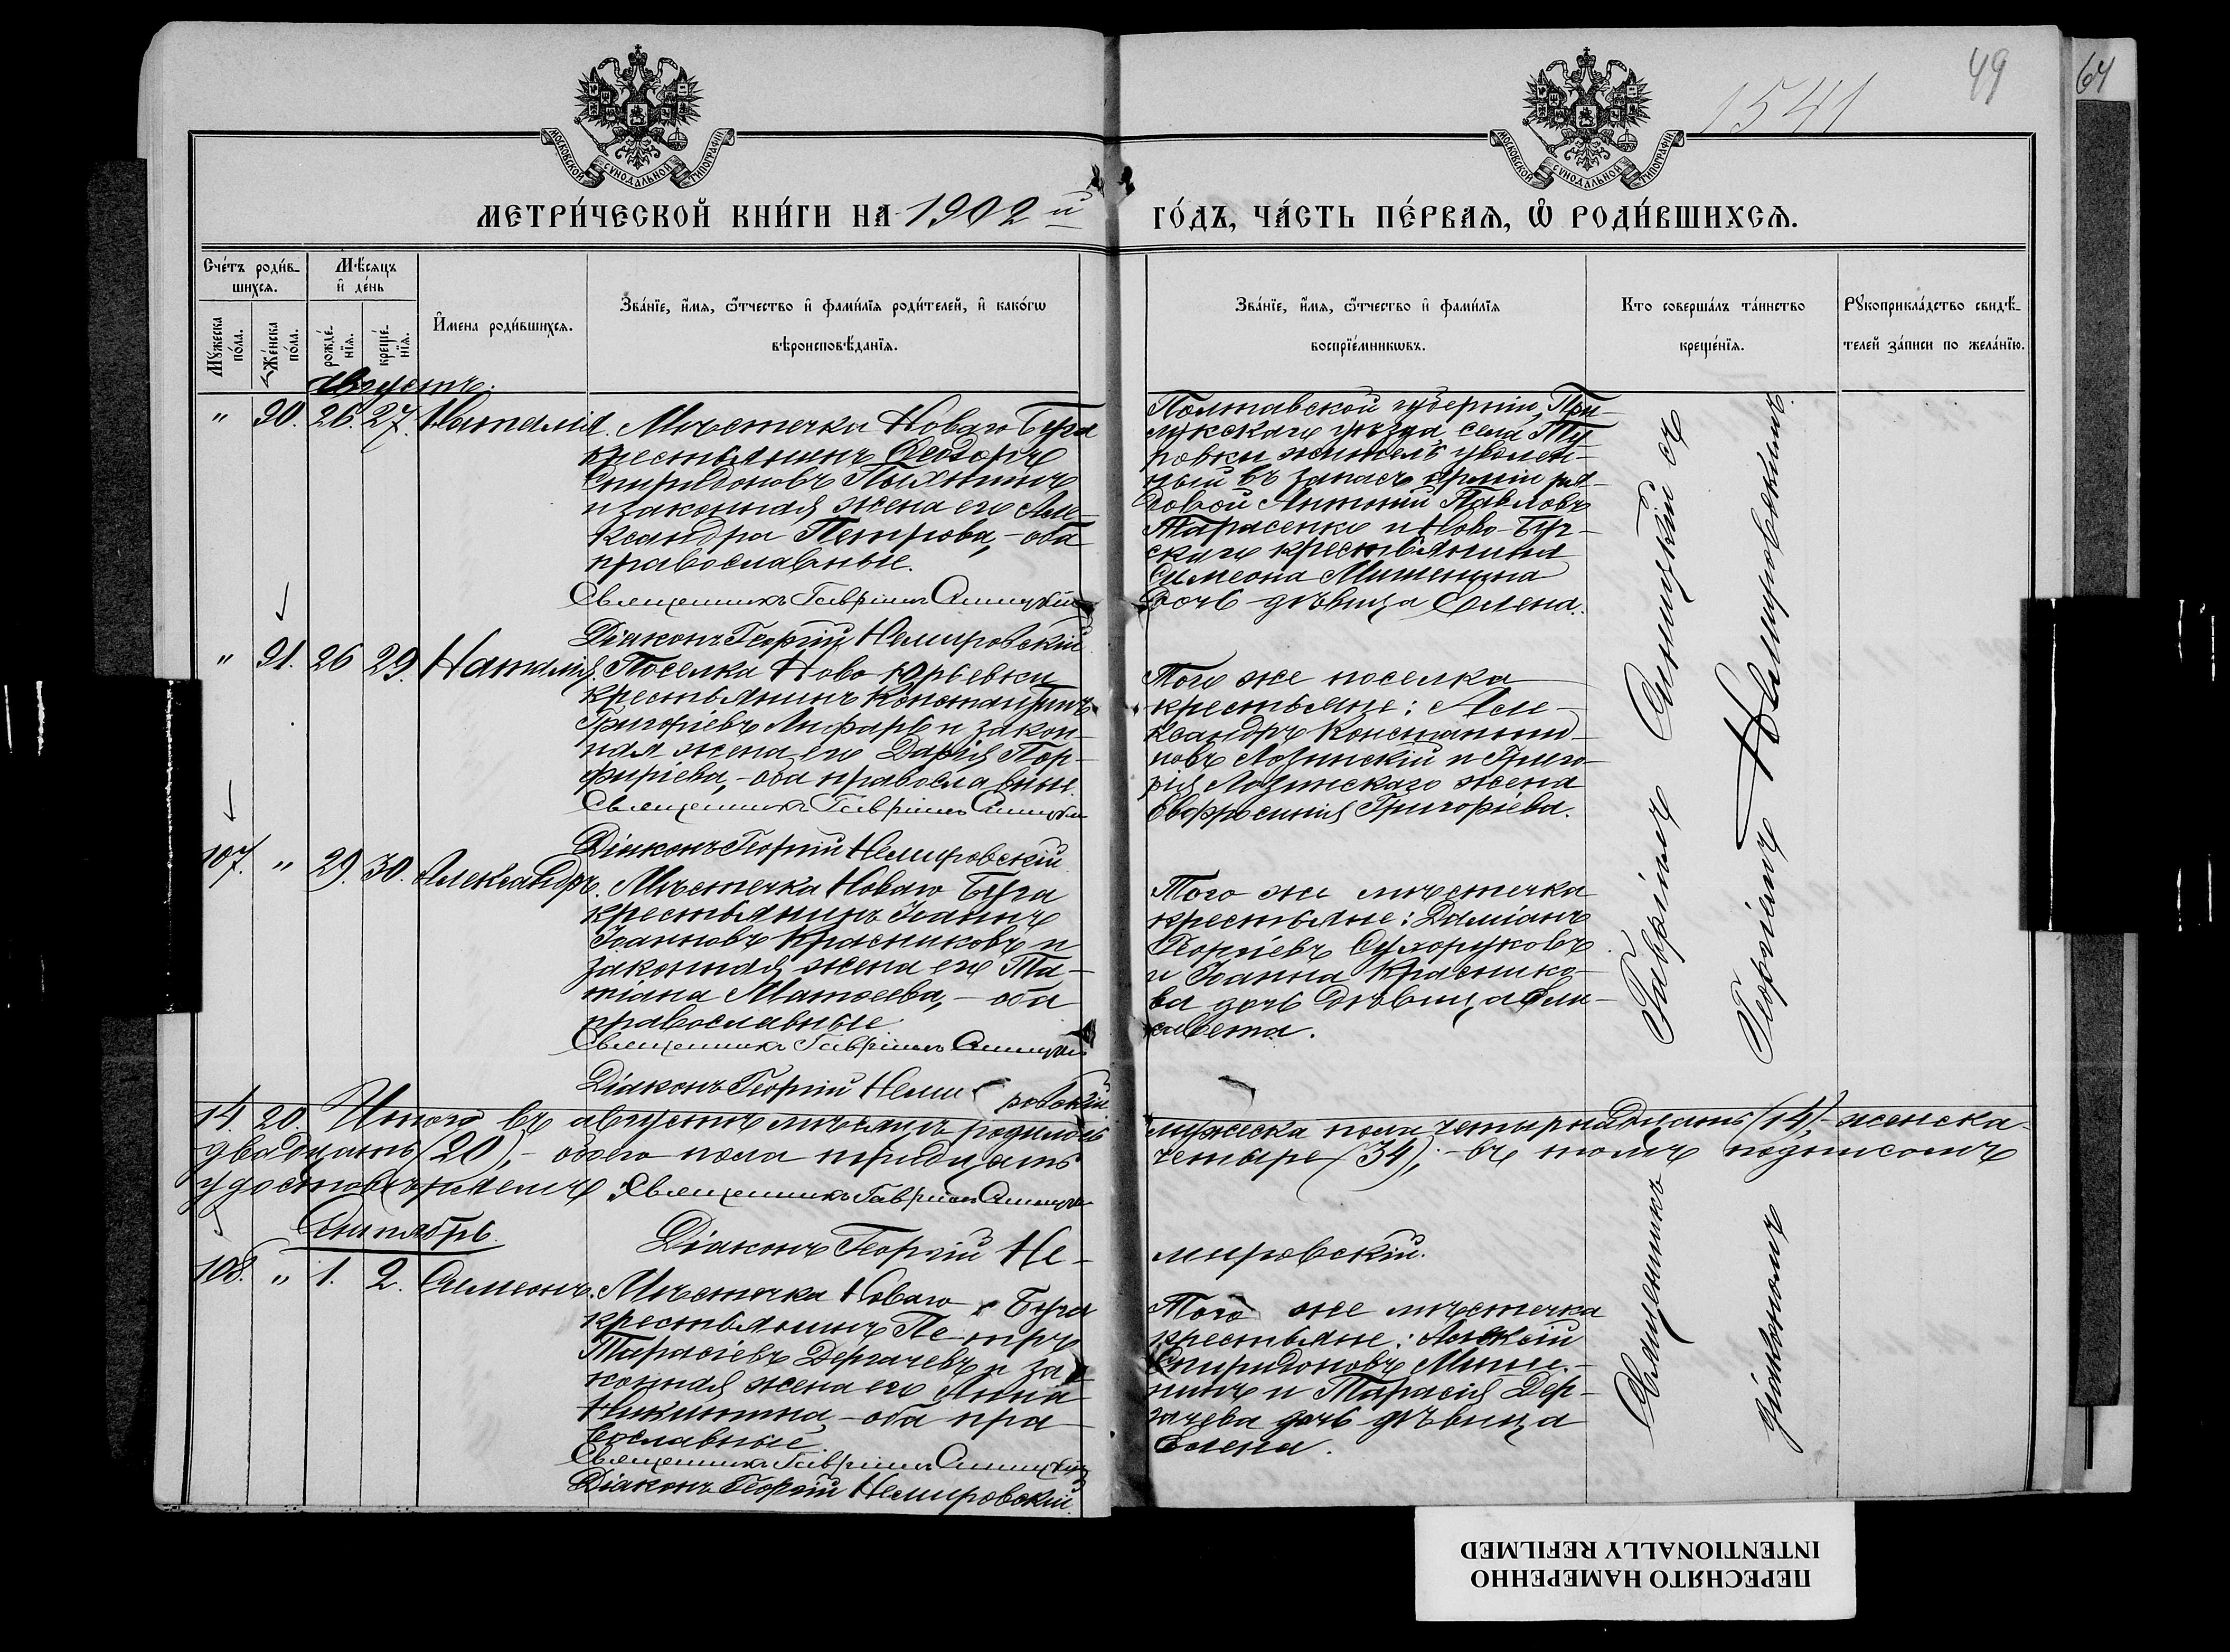 1541
49
64
МОСКОВСКОЙ СѴНОДАЛЬНОЙ ТИПОГРАФІИ
МОСКОВСКОЙ СѴНОДАЛЬНОЙ ТИПОГРАФІИ
МЕТРИ́ЧЕСКОЙ КНИ́ГИ НА 1902 й ГО́ДЪ, ЧА́СТЬ ПЕ́РВАЯ, Ѡ РОДИ́ВШИХСЯ.
Сче́тъ роди́в-
шихся.
Мѣ́сяцъ
и де́нь
Мꙋжеска по́ла.
Же́нска по́ла.
рожде́-
нїя.
креще́-
нїя.
И́мена роди́вшихся.
Зва́нїе, и́мя, ѻ҆́тчество и фами́лїя роди́телей, и како́гѡ
вѣроисповѣ́данїя.
Зва́нїе, и́мя, ѻ҆́тчество и фами́лїя
воспрїе́мниковъ.
Кто соверша́лъ та́инство
креще́нїя.
Рꙋкоприкла́дство свидѣ́-
телей за́писи по жела́нїю.
Августъ.
" 90. 26. 27. Наталія. Мѣстечка Новаго Буга
крестьянинъ Ѳеодоръ
Спиридоновъ Пыхнинъ
и законная жена его Але-
ксандра Петрова, - оба
православные.
Священникъ Гавріилъ Синицкій
Діаконъ Георгій Немировскій
Полтавской губерніи, При-
лукскаго уѣзда, села Ту-
ровки житель уволен-
ный въ запасъ арміи ря-
довой Антоній Павловъ
Тарасенко и Ново-Буг-
скаго крестьянина
Симеона Мишенина
дочь дѣвица Елена.
" 91. 26 29. Наталія. Поселка Ново-Юрьевки
крестьянинъ Константинъ
Григоріевъ Лифарь и закон-
ная жена его Дарія Пор-
фиріева, - оба православные.
Священникъ Гавріилъ Синицкій
Діаконъ Георгій Немировскій
Того же поселка
крестьяне: Але-
ксандръ Константи-
новъ Лозинскій и Григо-
рія Лозинскаго жена
Евфросинія Григоріева.
107. " 29. 30. Александръ. Мѣстечка Новаго Буга
крестьянинъ Іоаннъ
Іоанновъ Красниковъ и
законная жена его Та-
тіана Матѳеева, - оба
православные
Священникъ Гавріилъ Синицкій
Діаконъ Георгій Немировскій.
Того же мѣстечка
крестьяне: Даміанъ
Георгіевъ Сухоруковъ
и Іоанна Краснико-
ва дочь дѣвица Ели-
савета.
14. 20. Итого въ августѣ мѣсяцѣ родилось мужеска пола четырнадцать (14), - женска
двадцать (20), - обоего пола тридцать четыре (34); - въ томъ подписомъ
удостовѣряемъ: Священникъ Гавріилъ Синицкій
Діаконъ Георгій Не-мировскій.
Сентябрь.
108. " 1. 2. Симеонъ. Мѣстечка Новаго Буга
крестьянинъ Петръ
Тарасіевъ Дергачевъ и за-
конная жена его Анна
Никитина - оба пра-
вославные
Священникъ Гавріилъ Синицкій
Діаконъ Георгій Немировскій.
Того же мѣстечка
крестьяне: Алексій
Спиридоновъ Мише-
нинъ и Тарасія Дер-
гачева дочь дѣвица
Елена.
Священникъ Гавріилъ Синицкій съ
діакономъ Георгіемъ Немировскимъ.
ПЕРЕСНЯТО НАМЕРЕННО
INTENTIONALLY REFILMED